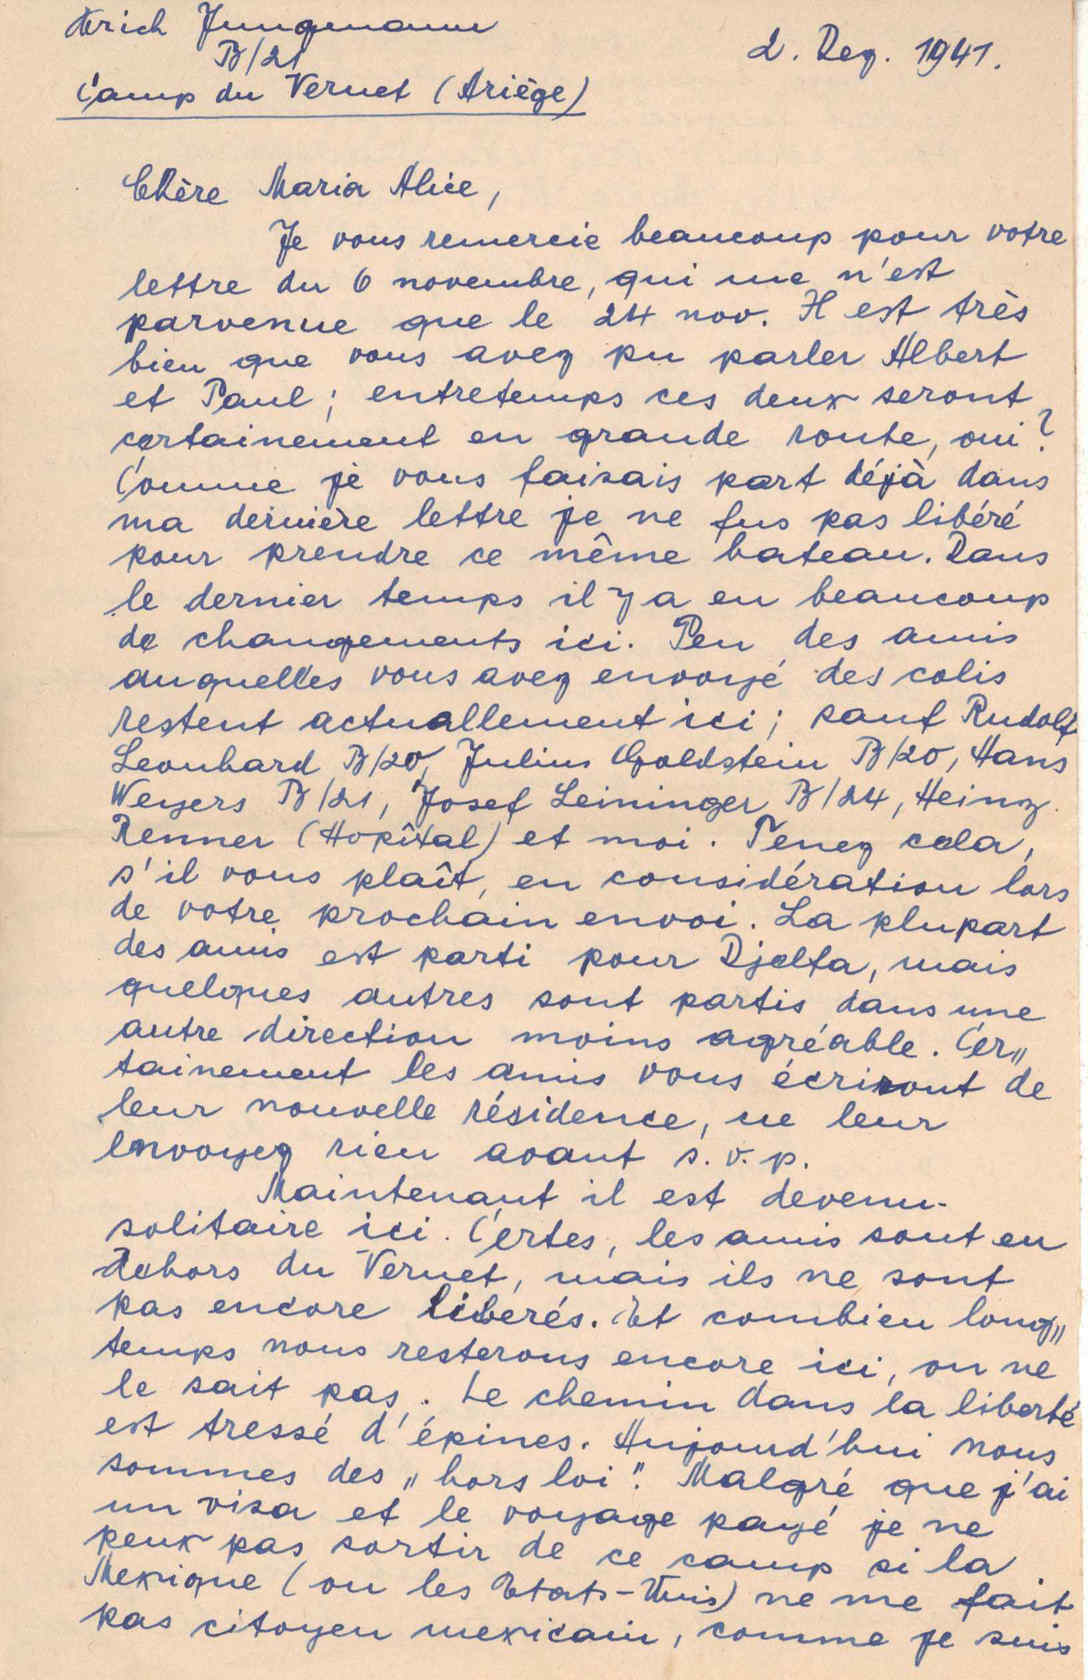 Erich Jungmann
B/21
Camp du Vernet (Ariège)
2. Dez. 1941.
Chère Maria Alice,
Je vous remercie beaucoup pour votre
lettre du 6 novembre, qui me n'est
parvenue que le 24 nov. Il est très
bien que vous avez pu parler Albert
et Paul; entretemps ces deux seront
certainement en grande route, oui?
Comme je vous faisais part déjà dans
ma dernière lettre je ne fus pas libéré
pour prendre ce même bateau. Dans
le dernier temps il y a eu beaucoup
de changements ici. Peu des amis
auquelles vous avez envoyé des colis
restent actuallement ici; sauf Rudolf
Leonhard B/20, Julius Goldstein B/20, Hans
Weyers B/21, Josef Leininger B/24, Heinz
Renner (Hopîtal) et moi. Tenez cela,
s'il vous plaît, en considération lors
de votre prochain envoi. La plupart
des amis est parti pour Djelfa, mais
quelques autres sont partis dans une
autre direction moins agréable. Cer„
tainement les amis vous écriront de
leur nouvelle résidence, ne leur
envoyez rien avant s.v.p.
Maintenant il est devenu
solitaire ici. Certes, les amis sont en
dehors du Vernet, mais ils ne sont
pas encore libérés. Et combien long„
temps nous resterons encore ici, on ne
le sait pas. Le chemin dans la liberté
est tressé d'épines. Aujourd'hui nous
sommes des „hors loi". Malgré que j'ai
un visa et le voyage payé je ne
peux pas sortir de ce camp si la
Mexique (ou les Etats-Unis) ne me fait
pas citoyen mexicain, comme je suis